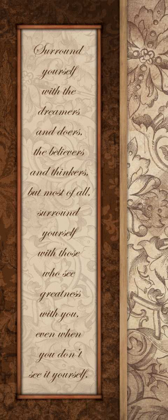 Surround
yourself
with the
dreamers
and doers,
the believers
and thinkers,
but most of all,
surround
yourself
with those
who see
greatness
with you,
even when
you don't
see it yourself.